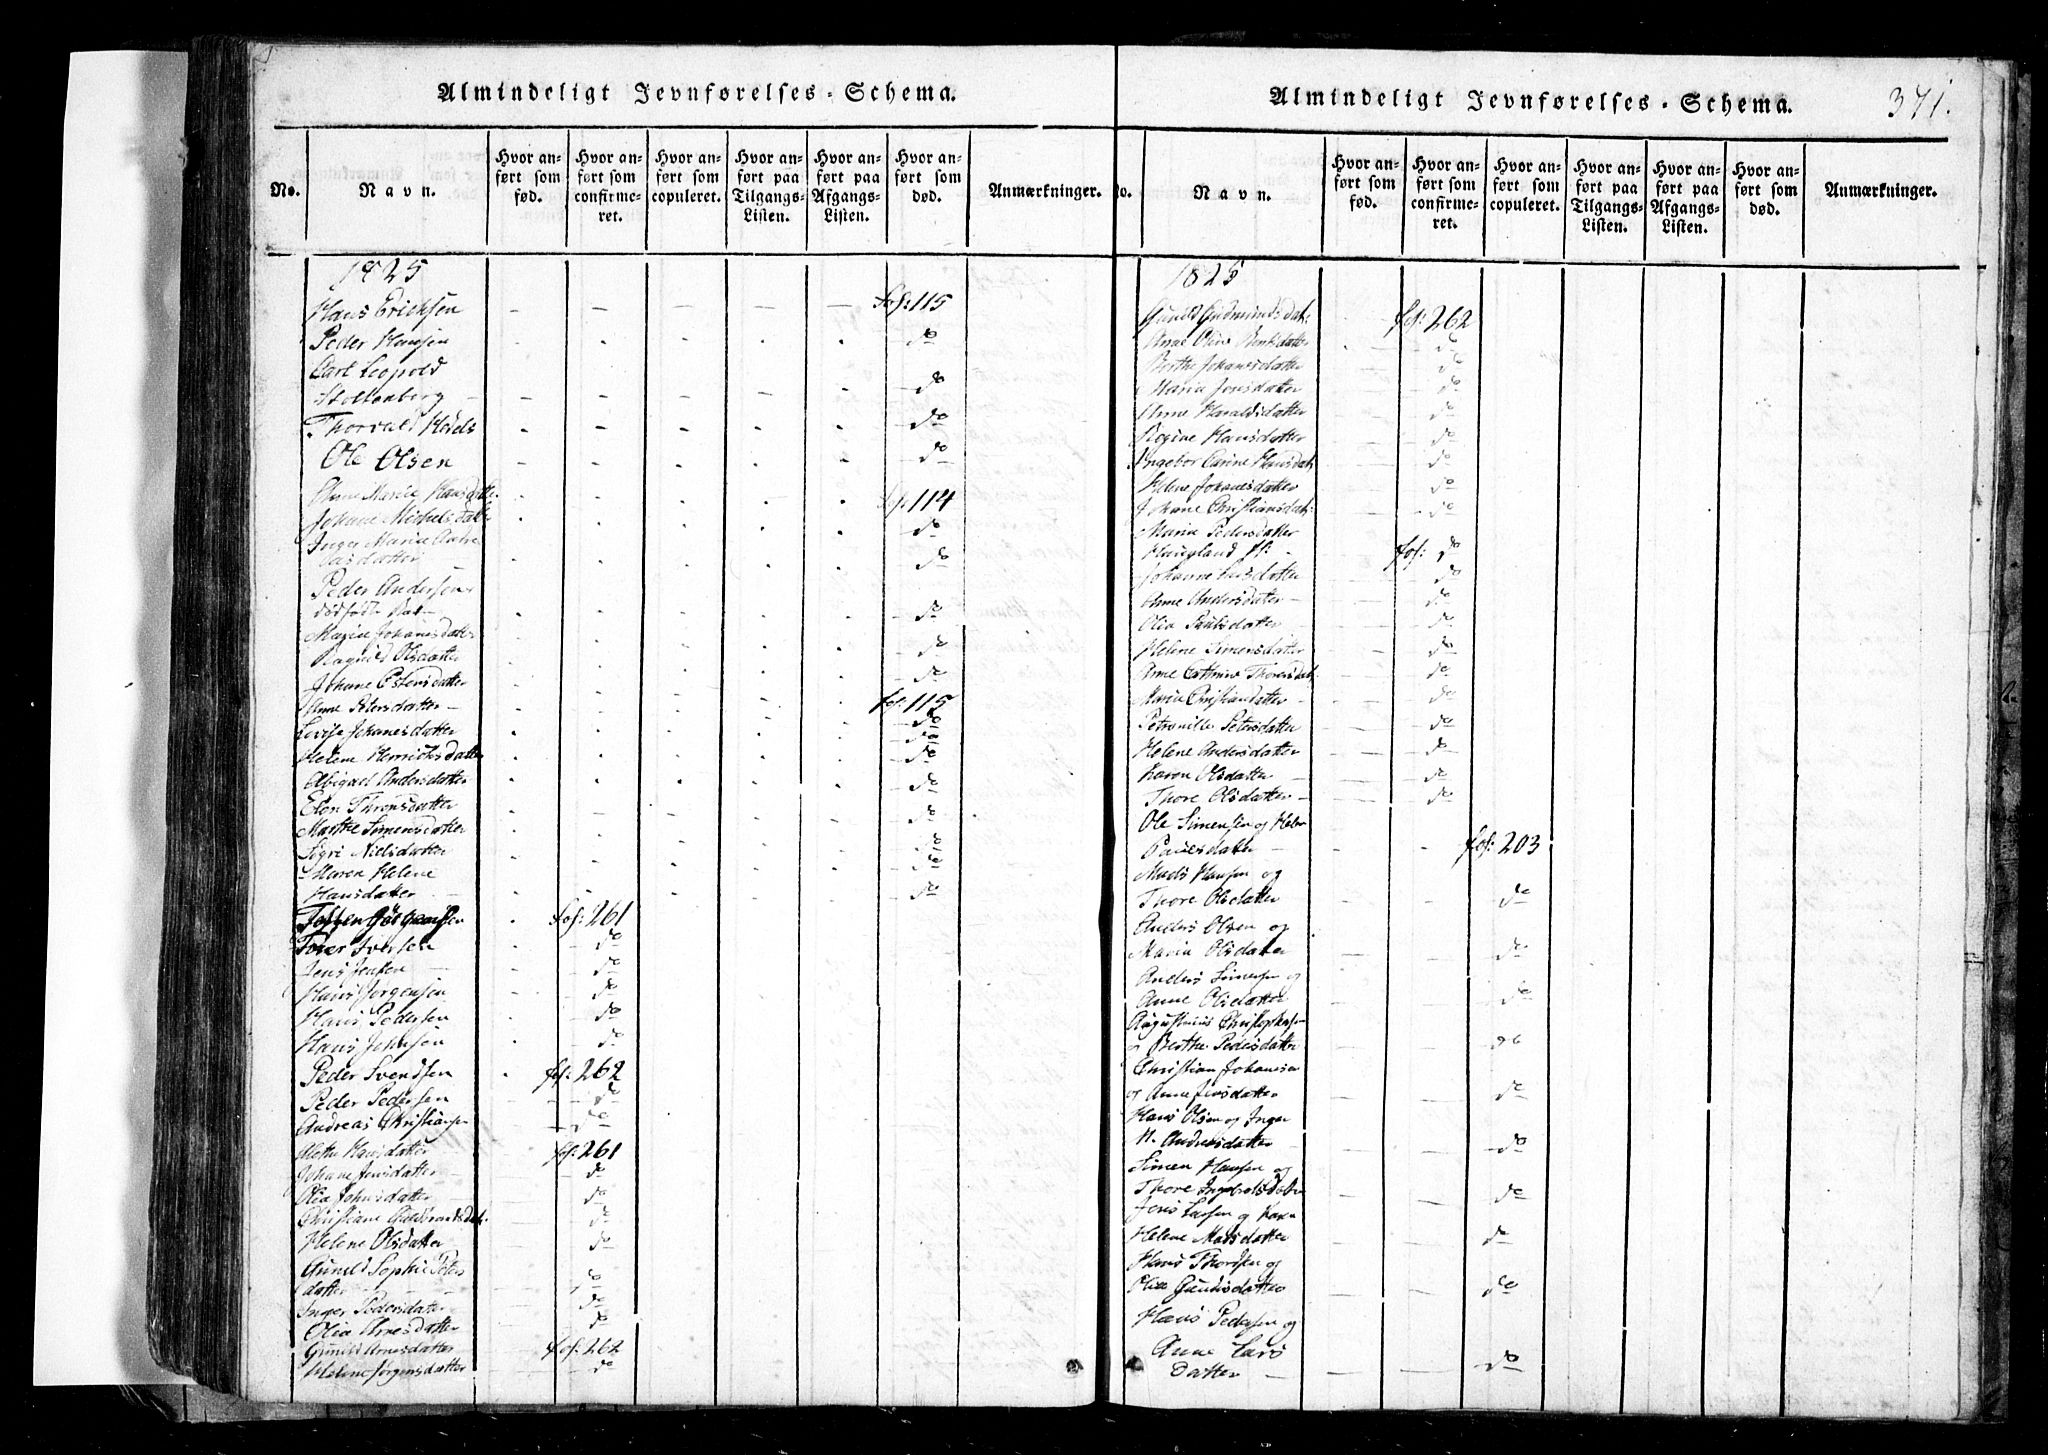 Almindeligt Jevnførelses-Schema.
No.
Navn.
Hvor an-
ført som
fød.
Hvor an-
ført som
confirme-
ret.
Hvor an-
ført som
copuleret.
Hvor an-
ført paa
Tilgangs-
Listen.
Hvor an-
ført paa
Afgangs-
Listen.
Hvor an-
ført som
død.
Anmærkninger.
1825
Hans Erichsen fol: 115
Peder Hansen do
Carl Leopold
Stoltenberg do
Thorvald do
Ole Olsen do
Anne Maria Hansdatter fol: 114
Johane Michelsdatter do
Inger Maria
datter do
Peder Andersens
dødfødt do
Maria Johanesdatter do
Ragnild Olsdatter do
Johane Estensdatter
Anne Petersdatter fol: 115
Lovise Johanesdatter do
Helene Henrichsdatter do
Abigael Andersdatter do
Elen Thronsdatter do
Marthe Simensdatter do
Sigri Nielsdatter do
Maren Helene
Hansdatter do
fol: 261
Iversen do
Jens Jensen do
Hans Jørgensen do
Hans Pedersen do
Hans Johnsen do
Peder Svendsen fol: 262
Peder Pedersen do
Andreas Christiansen do
Hansdatter fol: 261
Johane Jensdatter do
Olia Johnsdatter do
Christiane Guldbrandsdat: do
Helene Olsdatter do
Gunild Sophie Peters
datter do
Inger Pedersdatter do
Olia Arnesdatter do
Gunild Arnesdatter fol: 262
Helene Jørgensdatter do
Almindeligt Jevnførelses-Schema.
371.
No.
Navn.
Hvor an-
ført som
fød.
Hvor an-
ført som
confirme-
ret.
Hvor an-
ført som
copuleret.
Hvor an-
ført paa
Tilgangs-
Listen.
Hvor an-
ført paa
Afgangs-
Listen.
Hvor an-
ført som
død.
Anmærkninger.
1825
Gunild Gudmundsdat: fol: 262
Anne Olive do
Berthe Johanesdatter do
Maria Jensdatter do
Anne Haraldsdatter do
Regine Hansdatter do
Ingebor Carine Hansdat: do
Helene Johanesdatter do
Johane Christiansdat: do
Maria Pedersdatter
fol: do
Johanne Larsdatter do
Anne Andersdatter do
Olia Paulsdatter do
Helene Simensdatter do
Anne Cathrine Thoresdat: do
Maria Christiansdatter do
Petronille Petersdatter do
Helene Andersdatter do
Karen Olsdatter do
Thore Olsdatter do
Ole Simensen og Helene
Paulsdatter fol: 203
Mads Hansen og
Thore Olsdatter do
Anders Olsen og
Maria Olsdatter do
Anders Simensen og
Anne Olsdatter do
Augustinus Christophersen
og Berthe Pedersdatter do
Christian Johansen
og Anne Jensdatter do
Hans Olsen og Inger
M. Andersdatter do
Simen Hansen og
Thore Ingebretsdatter do
Jens Larsen og Karen
Helene Madsdatter do
Hans Thorsen og
Olia Gundersdatter do
Hans Pedersen og
Anne Lars
Datter do